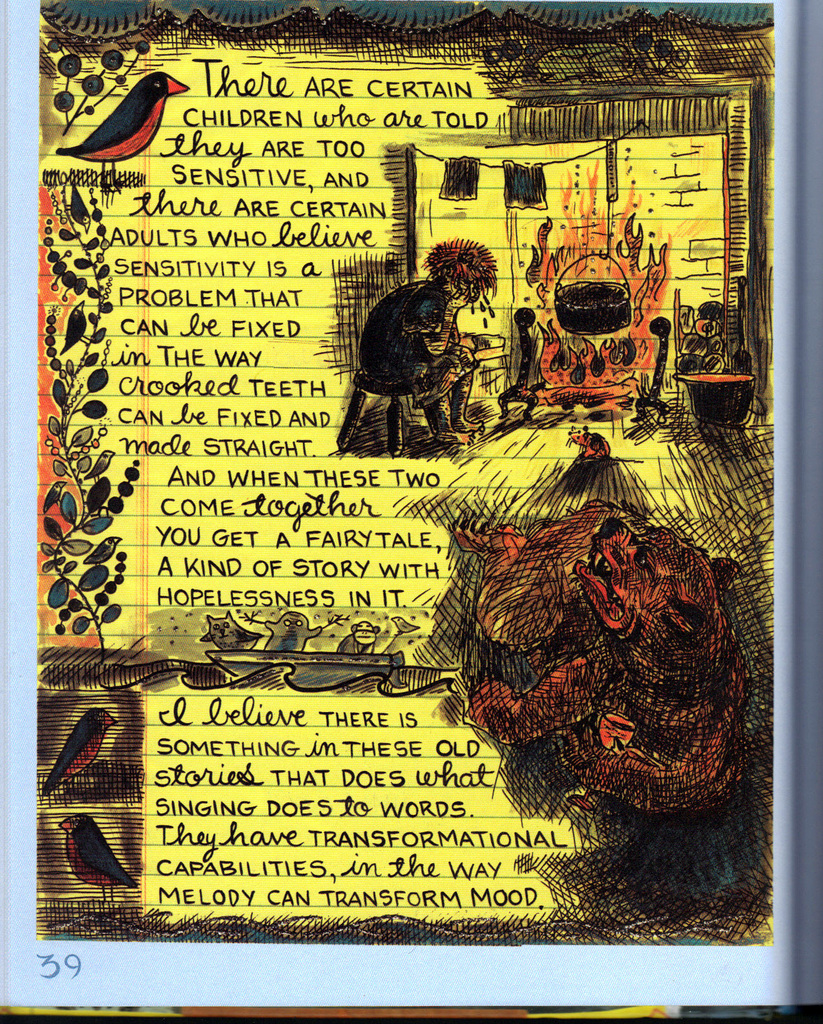 There ARE CERTAIN
CHILDREN who are TOLD
they ARE TOO
SENSITIVE, AND
there ARE CERTAIN
ADULTS WHO believe
SENSITIVITY IS a
PROBLEM THAT
CAN be FIXED
in THE WAY
crooked TEETH
CAN be FIXED AND
made STRAIGHT.
AND WHEN THESE TWO
COME together
YOU GET A FAIRYTALE,
A KIND OF STORY WITH
HOPELESSNESS IN IT.
I believe THERE IS
SOMETHING in THESE OLD
stories THAT DOES what
SINGING DOES to WORDS.
They have TRANSFORMATIONAL
CAPABILITIES, in the WAY
MELODY CAN TRANSFORM MOOD.
39